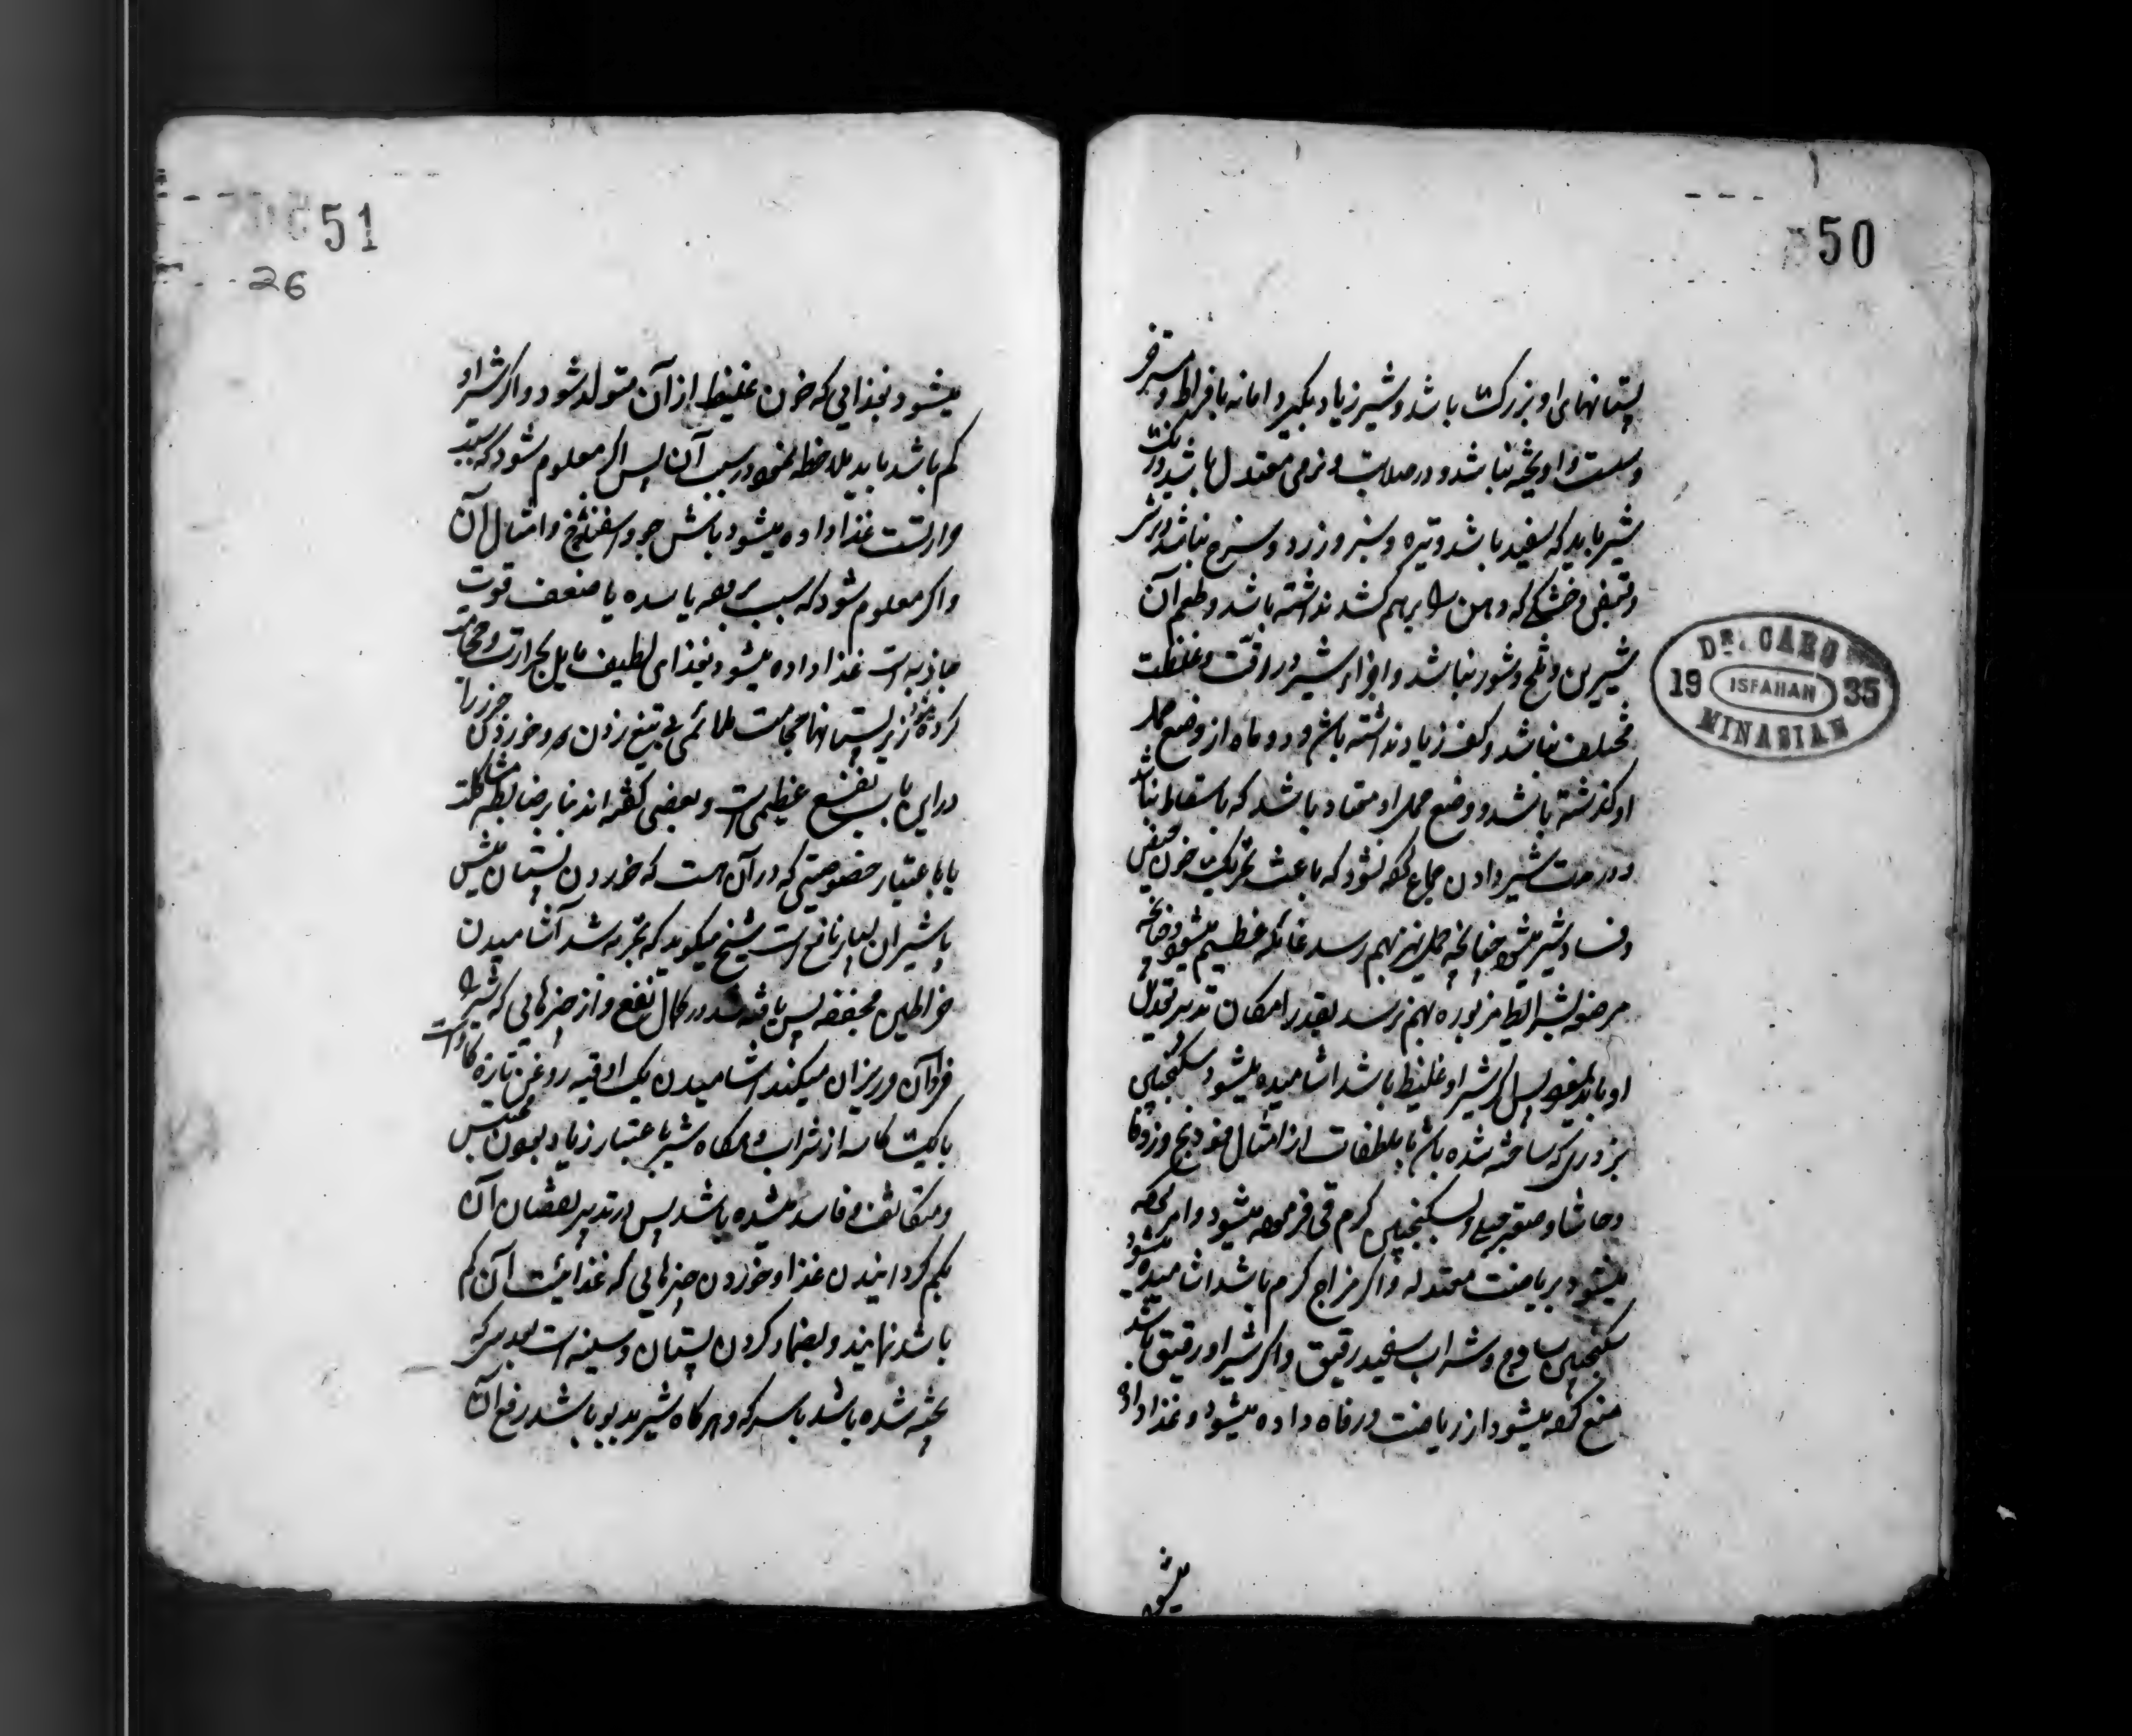 50
پستانهای او بزرک باشد و شیر زیاد بکیرد اما نه بافراط و مسترخی
و سست و اویخته نباشد و در صلابت و نرمی معتدل باشد و رنک
شیر باید که سفید باشد و تیره و سبز و زرد و سرخ نباشد و ترش
و خشکی که دهن را برهم کشد نداشته باشد و طعم آن
شیرین و تلخ و شور نباشد و اجزای شیر در رقت و غلظت
مختلف نباشد و کف زیاد نداشته باشد و دو ماه از وضع حمل
او کذشته باشد و وضع حمل او معتاد باشد که باسقاط نباشد
و در مدت شیر دادن جماع کرده نشود که باعث تحریک خون حیض
و فساد شیر میشود چنانچه حمل نیز بهم رسد غائله عظیم میشود و چنانچه
مرضعه بشرایط مزبوره بهم نرسد بقدر امکان تدبیر تعدیل
او باید نمود پس اکر شیر او غلیظ باشد اشامیده میشود سکنجبین
بزوری که ساخته شده باشد با ملطفات از امثال فودنج و زوفا
و حاشا و صعتر جبلی و بسکنجبین کرم قی فرموده میشود و امر کرده
میشود بریاضت معتدله و اکر مزاج کرم باشد اشامیده میشود
سکنجبین ساذج و شراب سفید رقیق و اکر شیر او رقیق باشد
منع کرده میشود از ریاضت و رفاه داده میشود و غذا داده
میشود
DR. CARO
19 ISFAHAN 35
MINASIAN
51
26
میشود بغذایی که خون غلیظ از آن متولد شود و اکر شیر او
کم باشد باید ملاحظه نمود در سبب آن پس اکر معلوم شود که سبب
حرارتست غذا داده میشود باش جو و اسفناخ و امثال آن
و اکر معلوم شود که سبب برودت یا سده یا ضعف قوت
جاذبه است غذا داده میشود بغذای لطیف مایل بحرارت و حجامت
کرده میشود زیر پستانها حجامت ملائمی بی تیغ زدن و خوردن جزر را
در این باب نفع عظیمی است و بعضی کفته اند بنابر ضابطه مشاکلت
یا باعتبار خصوصیتی که در آن هست که خوردن پستان میش
با شیر آن بسیار نافع است شیخ میکوید که تجربه شد آشامیدن
خراطین مجففه پس یافته شد در کمال نفع و از چیزهایی که شیر را
فراوان و ریزان میکند اشامیدن یک اوقیه روغن تازه کاو است
با یک کاسه از شراب و هرکاه شیر باعتبار زیاد بودن محتبس
و متکاثف و فاسد شده باشد پس در تدبیر نقصان آن
بکم کردانیدن غذا و خوردن چیزهایی که غذائیت آن کم
باشد نمایند و بضماد کردن پستان و سینه است
پخته شده باشد با سرکه و هرکاه شیر بدبو باشد رفع آن